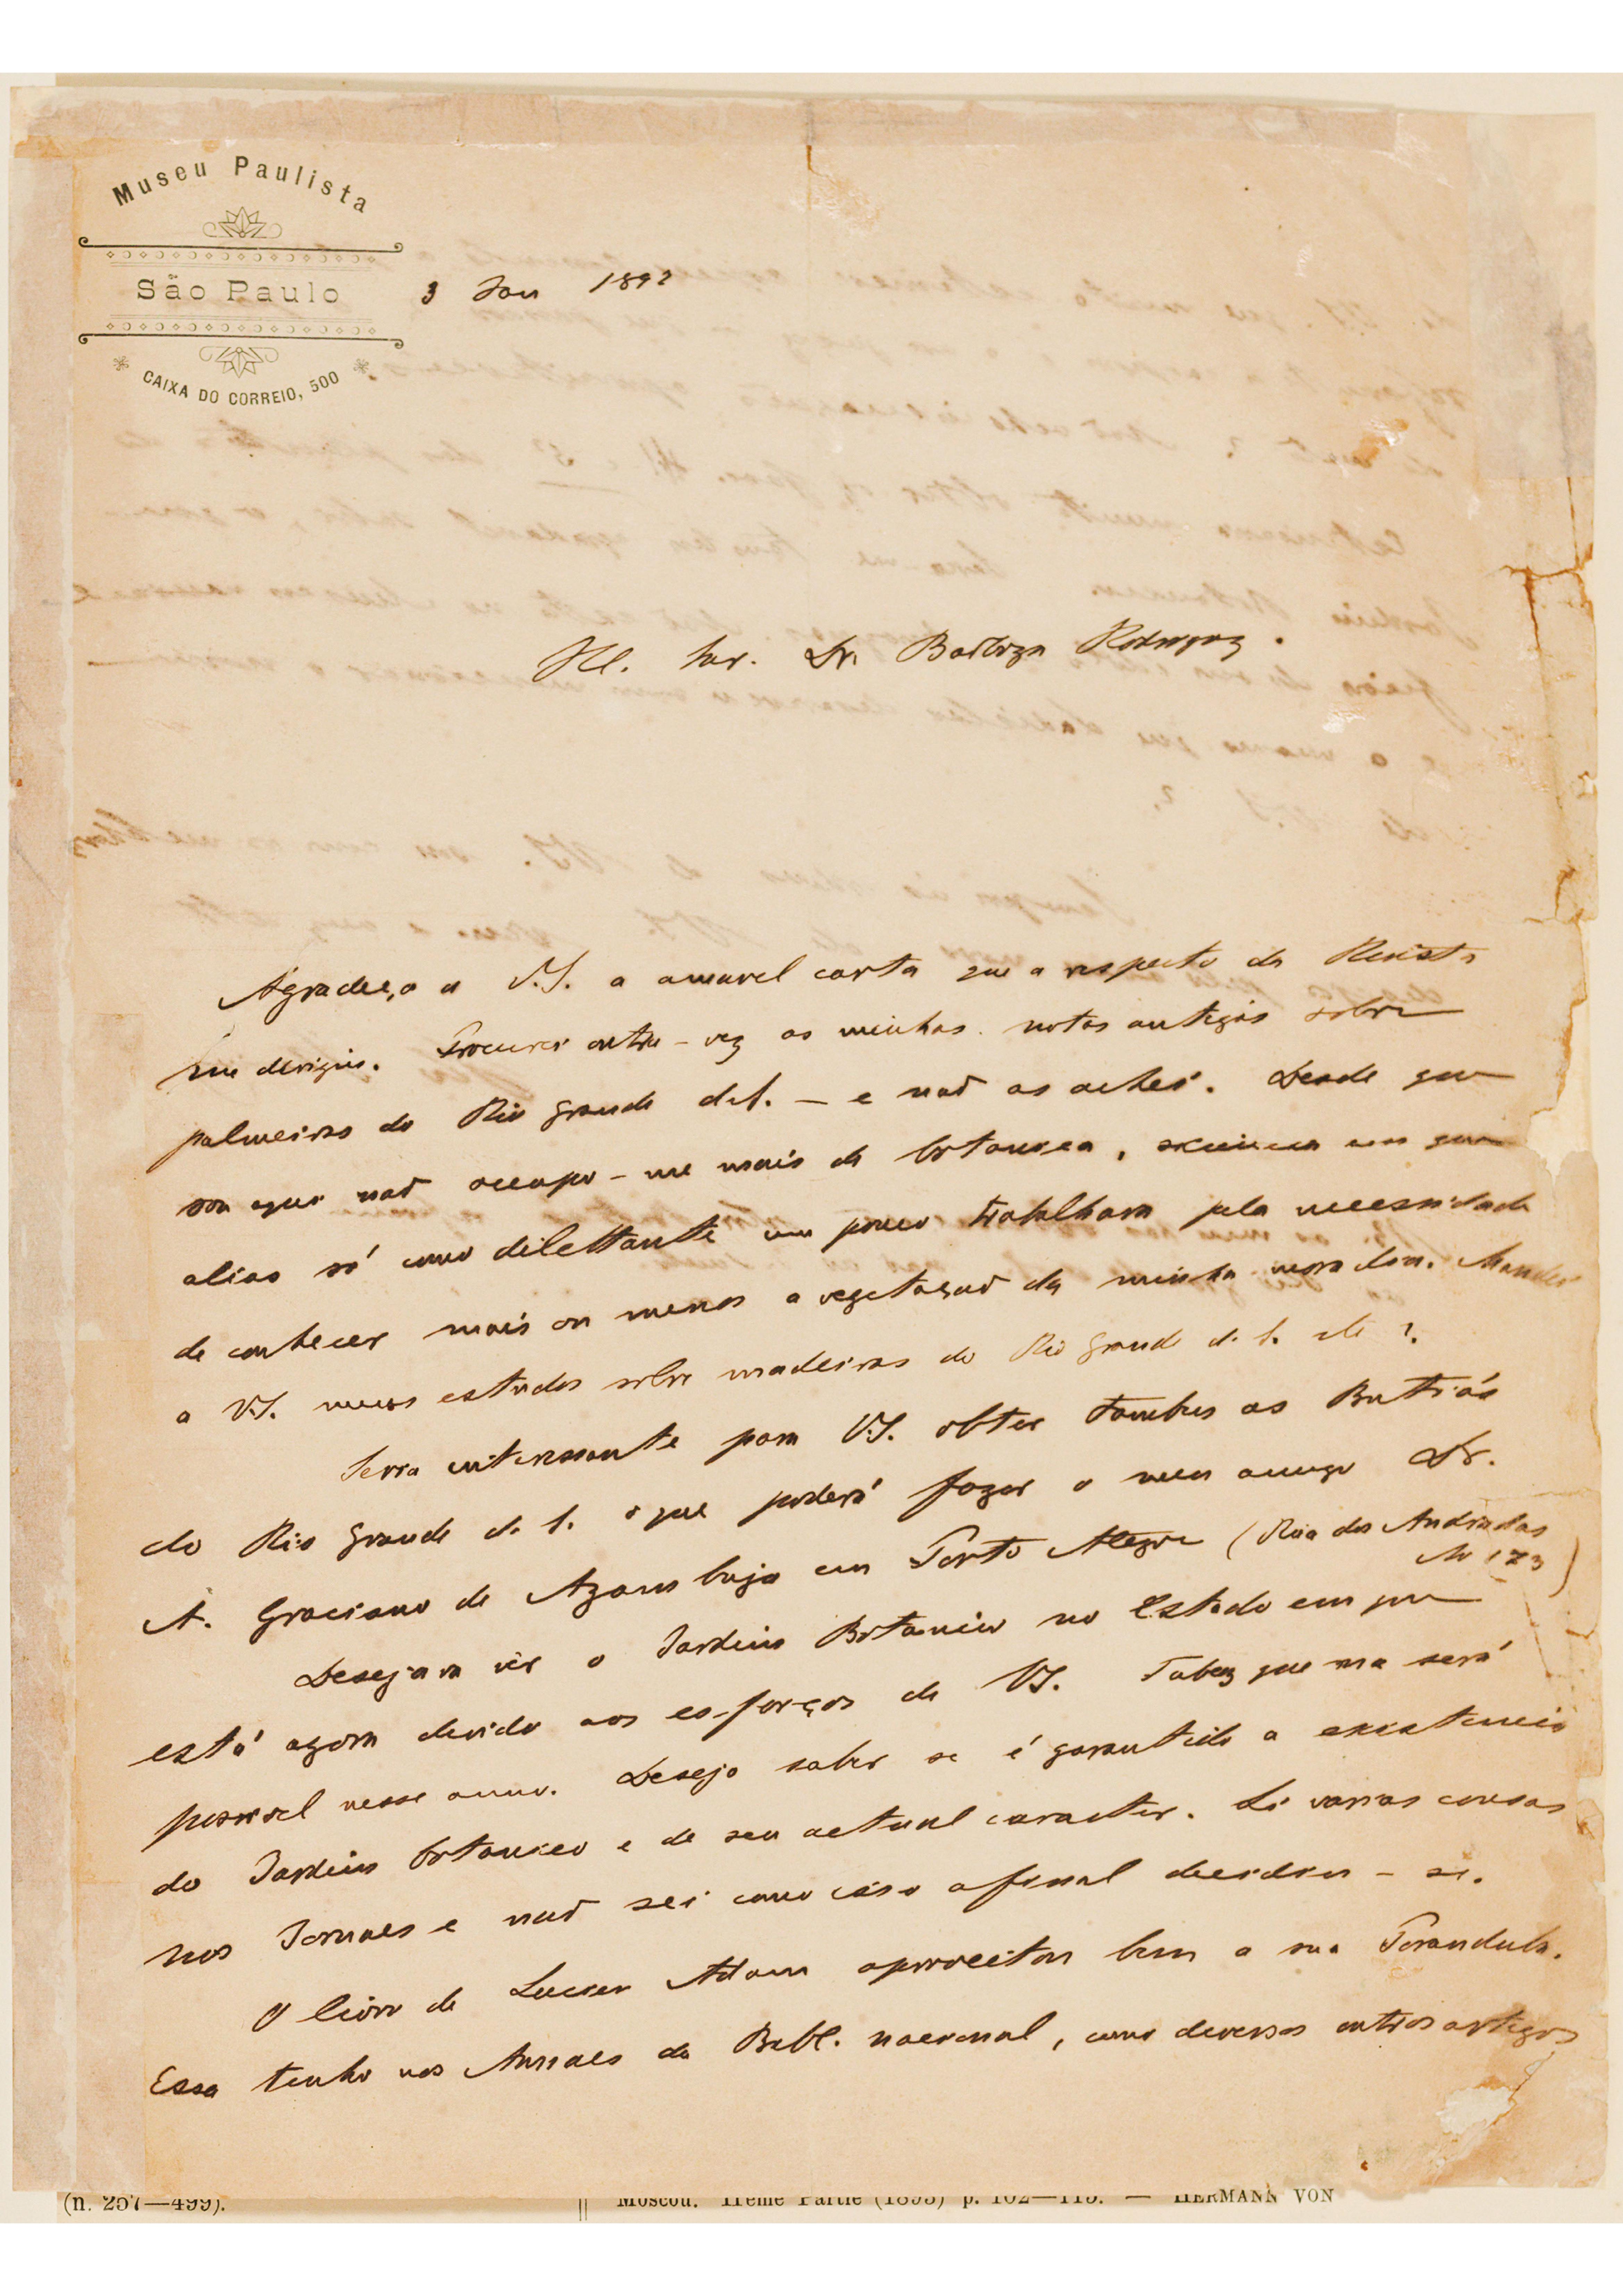 Museu Paulista
São Paulo
CAIXA DO CORREIO, 500
3 Jan 1897
Ill. Snr. Dr. Barboza Rodriguez.
Agradeço a V.S. a amavel carta que a respeito da Revista
me dirigiu. Procurei outra-vez as minhas notas antigas sobre
palmeiras do Rio Grande d. S. — e naõ as achei. Desde que
sou aqui naõ occupo-me mais da botanica, sciencia em que
alias só como dilettante um pouco trabalhava pela necessidade
de conhecer mais ou menos a vegetaçaõ da minha moradia. Mandei
a V.S. meus estudos sobre madeiras do Rio Grande d. S. etc?
Serra interessante para V.S. obter tambem as Butiás
do Rio Grande d. S. o que poderá fazer o meu amigo Dr.
A. Graciano de Azambuja em Porto Alegre (Rua dos Andradas
No 173)
Desejava vêr o Jardim Botanico no Estado em que
está agora devido aos esforços de V.S. Talvez que me será
possivel nesse anno. Desejo saber se é garantido a existencia
do Jardim botanico e de seu actual caracter. Li varias cousas
nos Jornaes e naõ sei como isso afinal decidiu-se.
O livro de Lucien Adam aproveitou bem a sua Poranduba.
Essa tenho nos Annaes da Bibl. nacional, como diversos outros artigos
(n. 257—499).
Moscou. IIeme Partie (1893) p. 102—115. — HERMANN VON